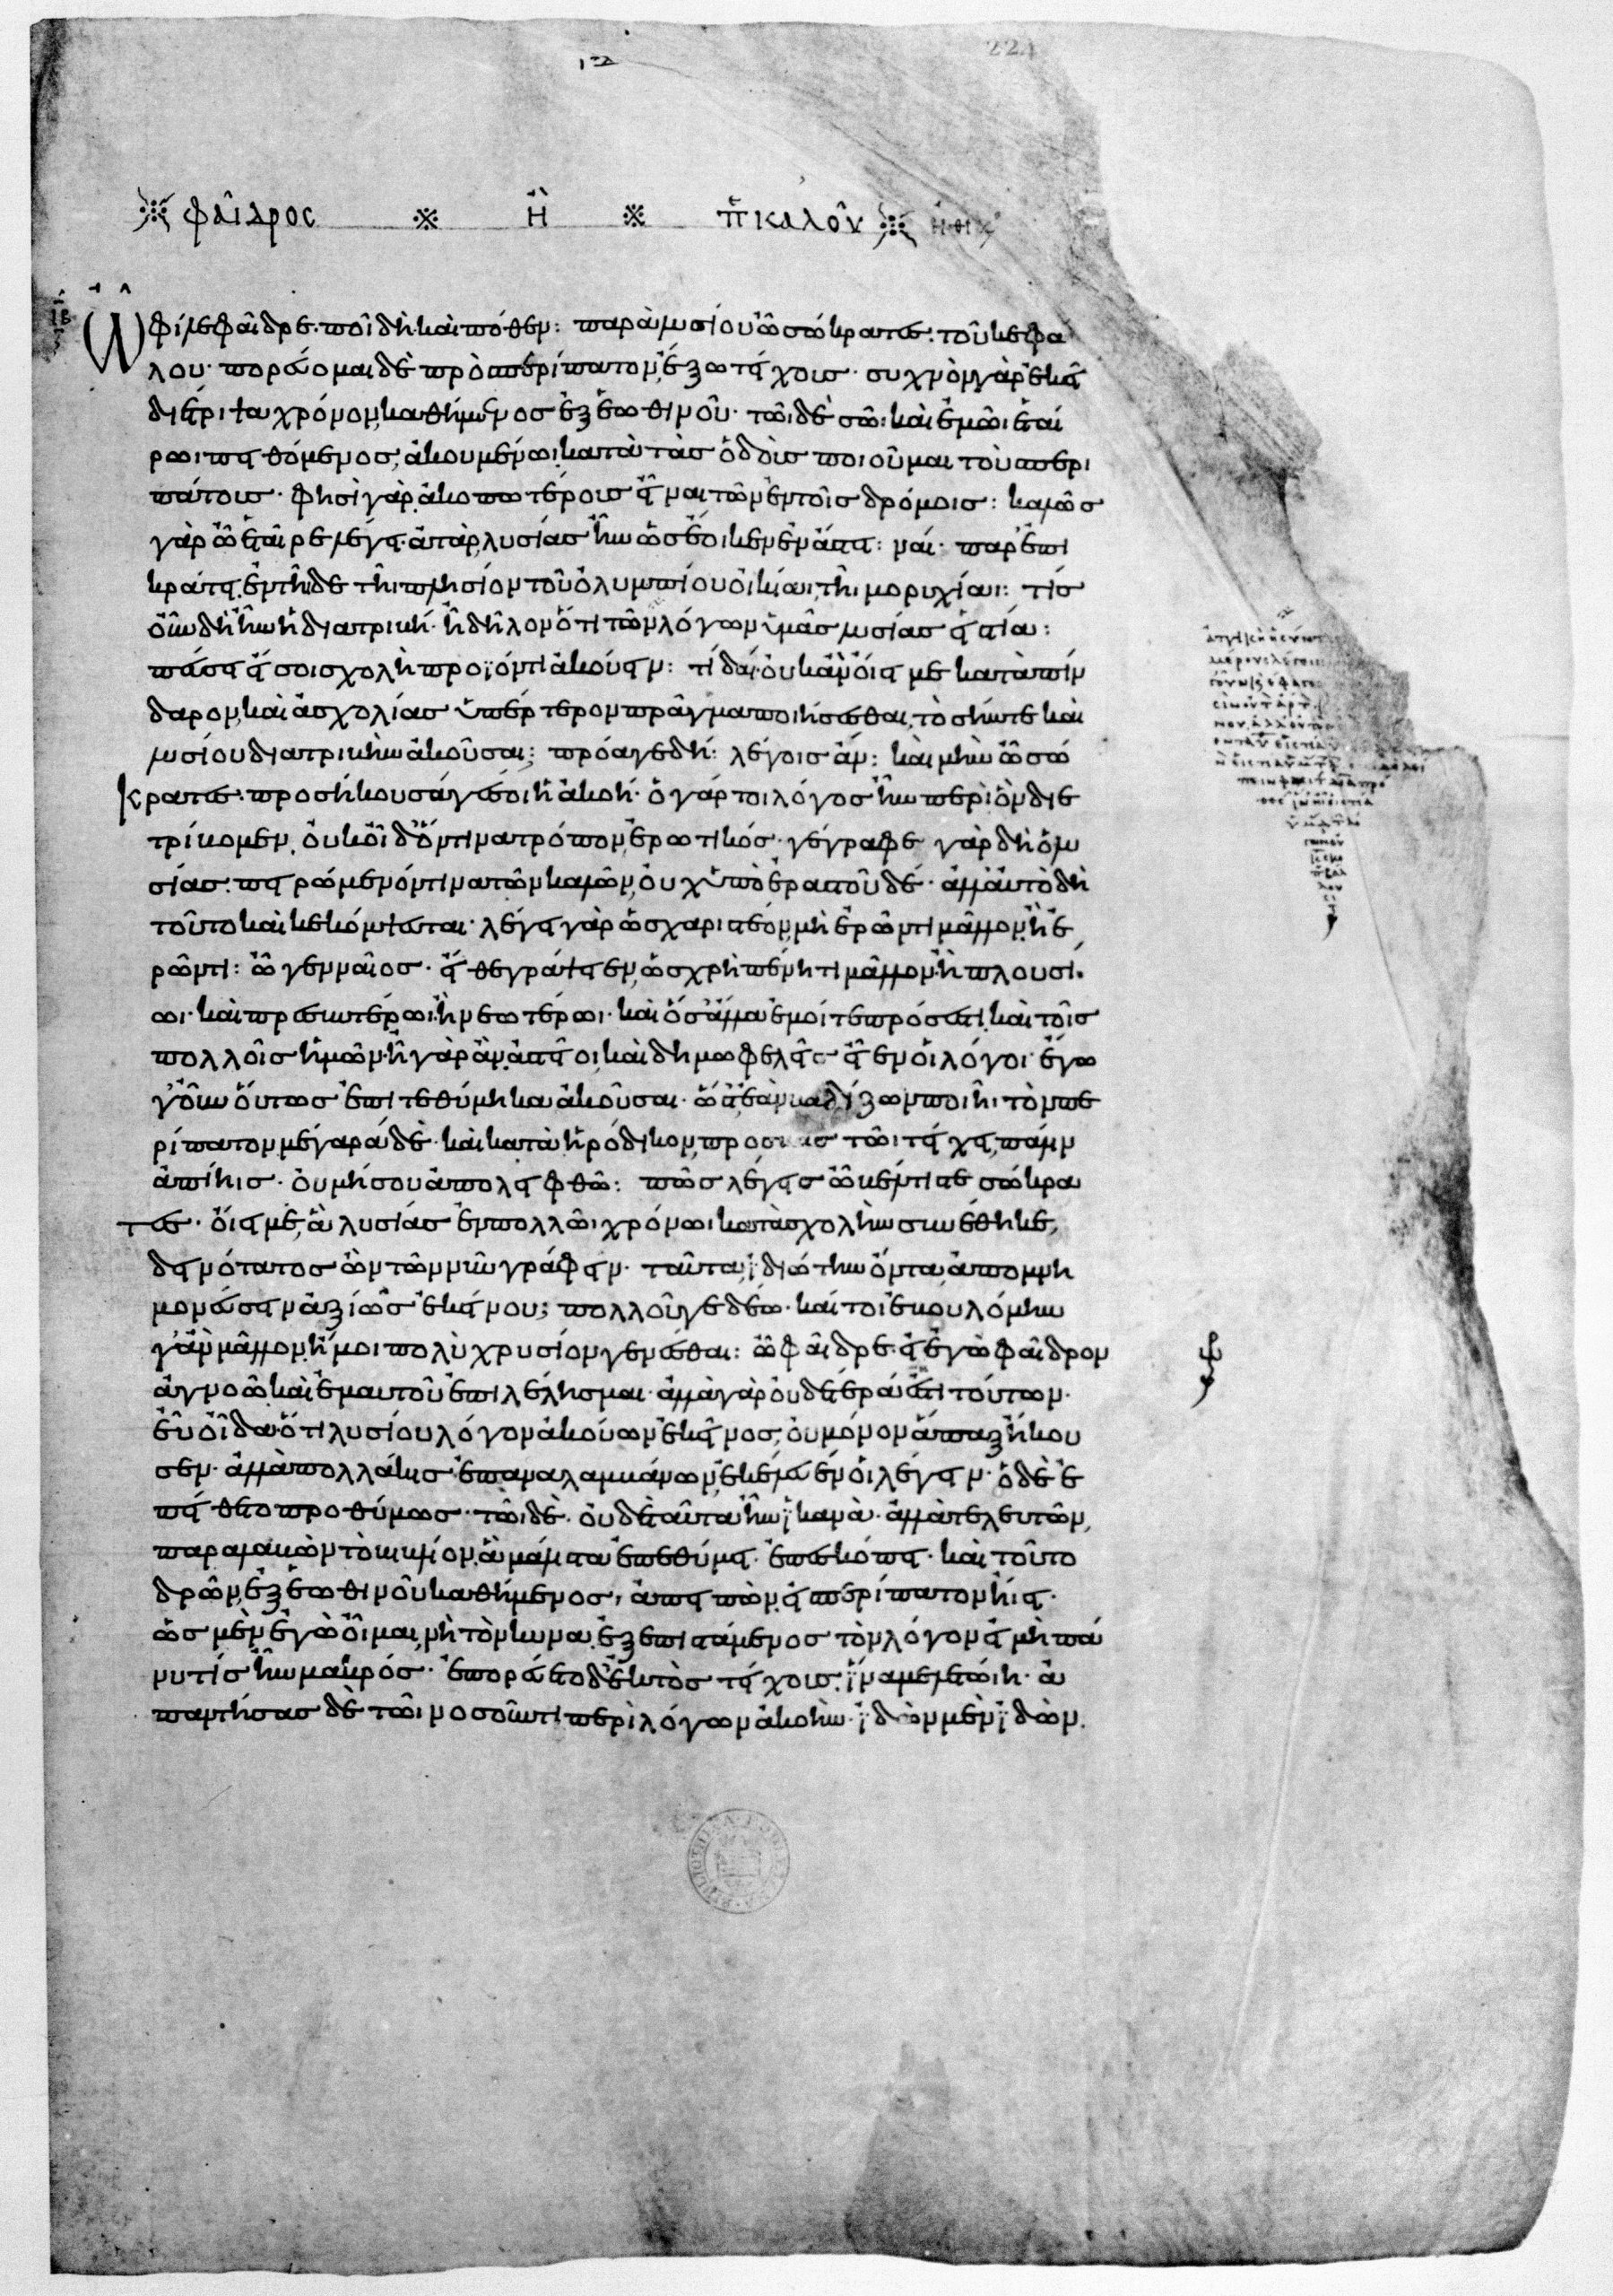 ιδ
224
φαῖδρος ἢ π καλοῦ ἠθικ
ιβ
Ὦ φίλε φαῖδρε· ποῖ δὴ καὶ πόθεν: παρὰ λυσίου ὦ σώκρατες· τοῦ κεφά
λου· πορεύομαι δὲ πρὸς περίπατον, ἔξω τείχους· συχνὸν γὰρ ἐκεῖ
διέτριψα χρόνον, καθήμενος ἐξ ἑωθινοῦ· τῶι δὲ σῶι καὶ ἐμῶι ἑταί
ρωι πειθόμενος, ἀκουμενῶι, κατὰ τὰς ὁδοὺς ποιοῦμαι τοὺς περι
πάτους· φησὶ γὰρ ἀκοπωτέρους εἶναι τῶν ἐν τοῖς δρόμοις: καλῶς
γὰρ ὦ ἑταῖρε λέγει· ἀτὰρ λυσίας ἦν ὡς ἔοικεν ἐν ἄστει: ναί· παρ' ἐπι
κράτει, ἐν τῆιδε τῆι πλησίον τοῦ ὀλυμπίου οἰκίαι, τῆι μορυχίαι: τίς
οὖν δὴ ἦν ἡ διατριβή· ἢ δῆλον ὅτι τῶν λόγων ὑμᾶς λυσίας εἱστία:
πεύσει εἴ σοι σχολὴ προϊόντι ἀκούειν: τί δαί· οὐκ ἂν οἴει με κατὰ πίν
δαρον, καὶ ἀσχολίας ὑπέρτερον πρᾶγμα ποιήσεσθαι, τὸ σήν τε καὶ
λυσίου διατριβὴν ἀκοῦσαι; πρόαγε δή: λέγοις ἄν: καὶ μὴν ὦ σώ
κρατες· προσήκουσά γέ σοι ἡ ἀκοή· ὁ γάρ τοι λόγος ἦν περὶ ὃν διε
τρίβομεν, οὐκ οἶδ' ὅντινα τρόπον, ἐρωτικός· γέγραφε γὰρ δὴ ὁ λυ
σίας, πειρώμενόν τινα τῶν καλῶν, οὐχ ὑπὸ ἐραστοῦ δέ· ἀλλ' αὐτὸ δὴ
τοῦτο καὶ κεκόμψευται· λέγει γὰρ ὡς χαριστέον, μὴ ἐρῶντι μᾶλλον, ἢ ἐ
ρῶντι: ὦ γενναῖος· εἴθε γράψειεν, ὡς χρὴ πένητι μᾶλλον ἢ πλουσί
ωι· καὶ πρεσβυτέρωι ἢ νεωτέρωι· καὶ ὅσ' ἄλλα ἐμοί τε πρόσεστι, καὶ τοῖς
πολλοῖς ἡμῶν· ἦ γὰρ ἂν ἀστεῖοι, καὶ δημωφελεῖς εἶεν οἱ λόγοι· ἔγω
γ' οὖν οὕτως ἐπιτεθύμηκα ἀκοῦσαι· ὥστ' ἐὰν βαδίζων ποιῆι τὸν πε
ρίπατον μέγαράδε· καὶ κατὰ ἡρόδικον, προσβὰς τῶι τείχει, πάλιν
ἀπίηις· οὐ μή σου ἀπολειφθῶ: πῶς λέγεις ὦ βέλτιστε σώκρα
τες· οἴει με, ἃ λυσίας ἐν πολλῶι χρόνωι κατὰ σχολὴν συνέθηκε,
δεινότατος ὢν τῶν νῦν γράφειν· ταῦτα, ἰδιώτην ὄντα, ἀπομνη
μονεύσειν ἀξίως ἐκείνου; πολλοῦ γε δέω· καίτοι ἐβουλόμην
γ' ἂν μᾶλλον, ἤ μοι πολὺ χρυσίον γενέσθαι: ὦ φαῖδρε· εἰ ἐγὼ φαῖδρον
ἀγνοῶ, καὶ ἐμαυτοῦ ἐπιλέλησμαι· ἀλλὰ γὰρ οὐδέτερά ἐστι τούτων·
εὖ οἶδα ὅτι λυσίου λόγον ἀκούων ἐκεῖνος, οὐ μόνον ἅπαξ ἤκου
σεν· ἀλλὰ πολλάκις ἐπαναλαμβάνων, ἐκέλευέν οἱ λέγειν· ὁ δὲ ἐ
πείθετο προθύμως· τῶι δὲ· οὐδὲ ταῦτα ἦν ἱκανὰ· ἀλλὰ τελευτῶν,
παραλαβὼν τὸ βιβλίον, ἃ μάλιστα ἐπεθύμει· ἐπεσκόπει· καὶ τοῦτο
δρῶν, ἐξ ἑωθινοῦ καθήμενος, ἀπειπὼν, εἰς περίπατον ἤιει·
ὡς μὲν ἐγὼ οἶμαι, νὴ τὸν κύνα, ἐξεπιστάμενος τὸν λόγον, εἰ μὴ πά
νυ τίς ἦν μακρός· ἐπορεύετο δ' ἐκτὸς τείχους, ἵνα μελετώιη· ἀ
παντήσας δὲ τῶι νοσοῦντι περὶ λόγων ἀκοὴν· ἰδὼν μὲν ἰδὼν,